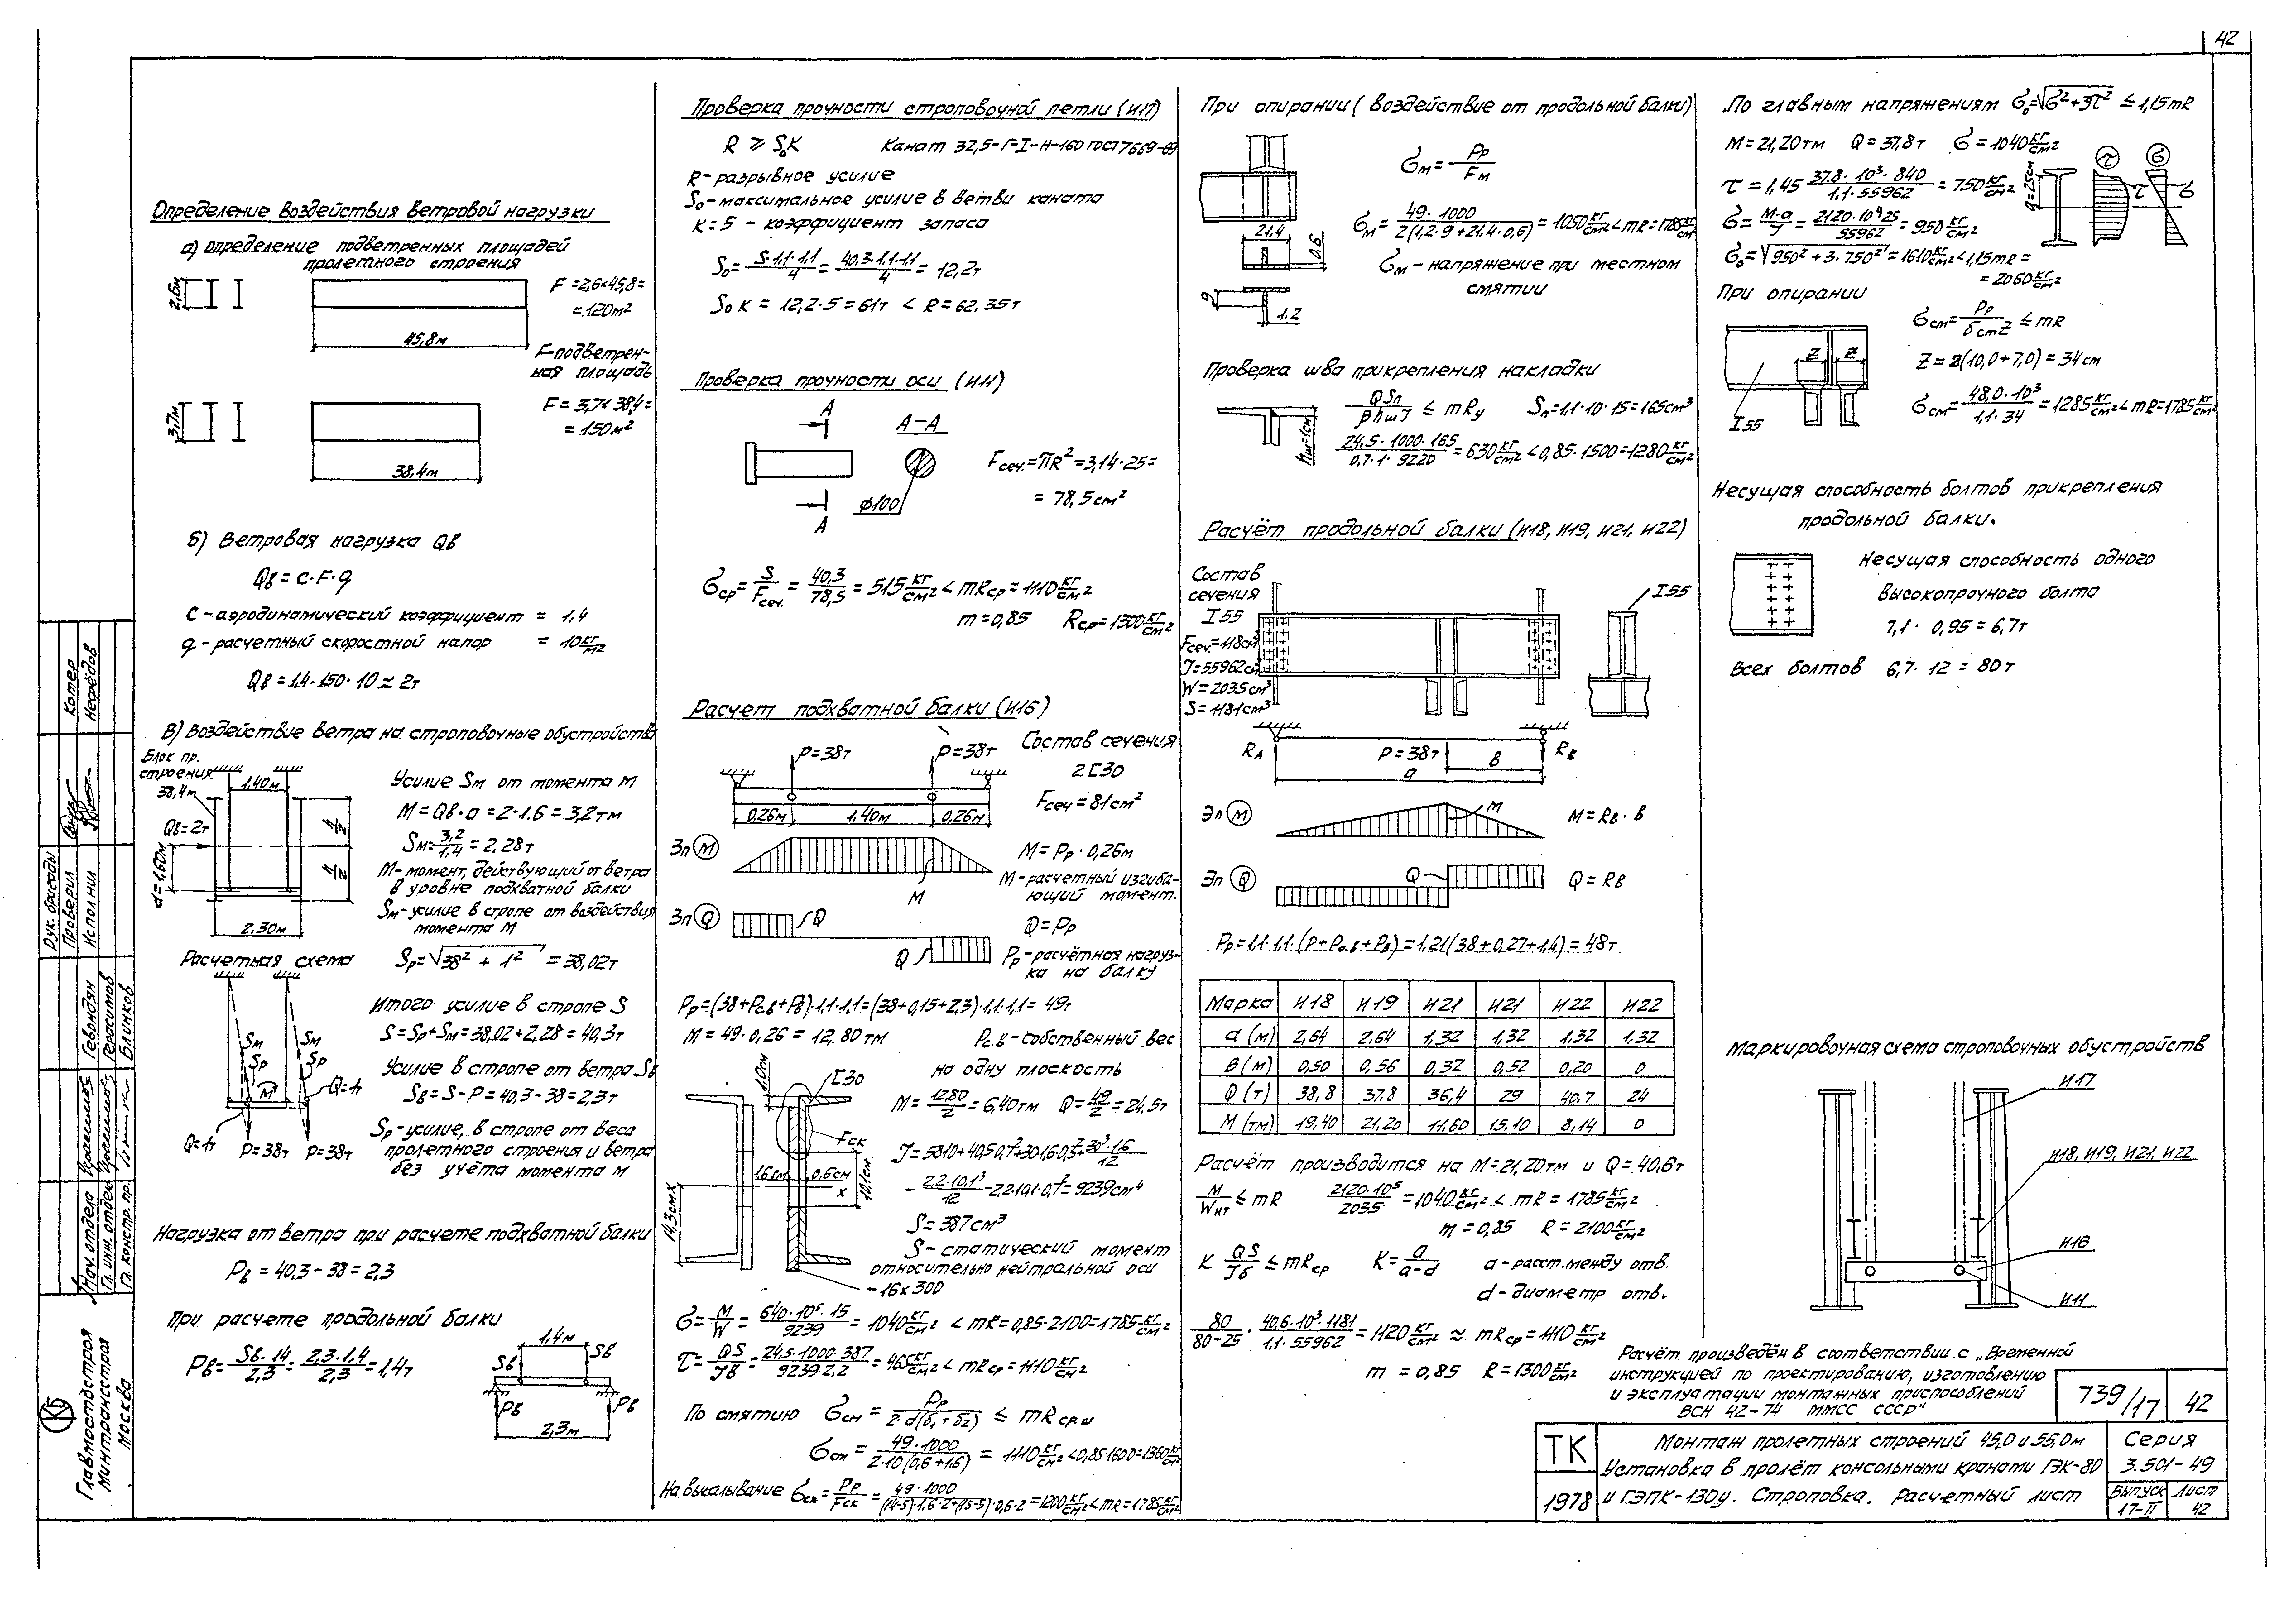 42
Определение воздействия ветровой нагрузки
а) определение подветренных площадей
пролетного строения
2,6м
45,8м
F = 2,6×45,8 =
= 120м²
F-подветрен-
ная площадь
3,7м
38,4м
F = 3,7×38,4 =
= 150м²
б) Ветровая нагрузка Qв
Qв = c·F·q
c - аэродинамический коэффициент = 1,4
q - расчетный скоростной напор = 10 кг/м²
Qв = 1,4·150·10 ≃ 2т
в) Воздействие ветра на строповочные обустройства
Блок пр.
строения
38,4м
1,40м
Qв=2т
d=1,60м
h/2
h/2
2,30м
Усилие Sм от момента М
М = Qв·а = 2·1.6 = 3,2тм
Sм = 3,2/1,4 = 2,28т
М-момент, действующий от ветра
в уровне подхватной балки
Sм-усилие в стропе от воздействия
момента М
Расчетная схема
Sр = √38² + 1² = 38,02т
Итого усилие в стропе S
S = Sр+Sм = 38,02+2,28 = 40,3т
Усилие в стропе от ветра Sв
Sв = S - P = 40,3-38 = 2,3т
Sр-усилие, в стропе от веса
пролетного строения и ветра
без учёта момента М
Sм Sм
Sр Sр
М Q=1т
Q=1т P=38т P=38т
Нагрузка от ветра при расчете подхватной балки
Рв = 40,3 - 38 = 2,3
При расчете продольной балки
Рв = Sв·1.4/2,3 = 2,3·1.4/2,3 = 1,4т
1,4м
Sв Sв
Рв Рв
2,3м
Проверка прочности строповочной петли (И17)
R ⩾ S₀K Канат 32,5-Г-I-Н-160 ГОСТ 7669-69
R-разрывное усилие
S₀-максимальное усилие в ветви каната
к=5 - коэффициент запаса
S₀ = S·1.1·1.1/4 = 40,3·1.1·1.1/4 = 12,2т
S₀ к = 12,2·5 = 61т < R = 62,35т
Проверка прочности оси (И11)
А
А-А
ф100
А
Fсеч. = πR² = 3,14·25 =
= 78,5см²
бср = S/Fсеч. = 40,3/78,5 = 515 кг/см² < mRср = 1110 кг/см²
m = 0,85 Rср = 1300 кг/см²
Расчет подхватной балки (И16)
P=38т P=38т
0,26м 1,40м 0,26м
Состав сечения
2 [30
Fсеч = 81см²
Эп М
М
М = Рр·0,26м
М-расчетный изгиба-
ющий момент.
Эп Q
Q
Q
Q = Рр
Рр-расчётная нагруз-
ка на балку
Рр = (38+Рс.в+Рв)·1.1·1,1 = (38+0,15+2,3)·1.1·1,1 = 49т
М = 49·0,26 = 12,80тм Рс.в-собственный вес
на одну плоскость
М = 12.80/2 = 6,40тм Q = 49/2 = 24,5т
1,0т
[30
Fск
1.6см 0,6см
x
10.1см
14,3см
J = 5810+40,5·0,7²+30·1.6·0,3²+30³·1.6/12
- 2.2·10,1³/12 - 2,2·10,1·0,7² = 9239см⁴
S = 387см³
S - статический момент
относительно нейтральной оси
-16×300
б = М/W = 640·10⁵·15/9239 = 1040 кг/см² < mR = 0,85·2100 = 1785 кг/см²
τ = QS/Jб = 24,5·1000·387/9239·2.2 = 465 кг/см² < mRср = 1110 кг/см²
По смятию бсм = Рр/2·d(б₁+б₂) ≤ mRср.ш
бсм = 49·1000/2·10(0,6+1.6) = 1110 кг/см² < 0,85·1600 = 1360 кг/см²
На выкалывание бск = Рр/Fск = 49·1000/(14-5)·1,6·2+(15-5)·0,6·2 = 1200 кг/см² < mR = 1785 кг/см²
При опирании (воздействие от продольной балки)
бм = Рр/Fм
бм = 49·1000/2(1,2·9+21.4·0,6) = 1050 кг/см² < mR = 1785 кг/см²
21,4
0,6
9
1.2
бм - напряжение при местном
смятии
Проверка шва прикрепления накладки
hш=1см
QSп/βhшJ ≤ mRу Sп = 1,1·10·15 = 165см³
24,5·1000·165/0,7·1·9220 = 630 кг/см² < 0,85·1500 = 1280 кг/см²
Расчёт продольной балки (И18, И19, И21, И22)
Состав
сечения
I 55
Fсеч. = 118см²
J = 55962см⁴
W = 2035см³
S = 1181см³
I 55
Rа P = 38т в Rв
а
Эп М
М
М = Rв·в
Эп Q
Q
Q = Rв
Рр = 1,1·1.1·(Р+Рс.в+Рв) = 1,21(38+0,27+1,4) = 48т
Марка И18 И19 И21 И21 И22 И22
а (м) 2,64 2,64 1,32 1,32 1,32 1,32
в (м) 0,50 0,56 0,32 0,52 0,20 0
Q (т) 38,8 37,8 36,4 29 40,7 24
М (тм) 19,40 21,20 11,60 15,10 8,14 0
Расчёт производится на М = 21,20тм и Q = 40,6т
М/Wнт ≤ mR 2120·10⁵/2035 = 1040 кг/см² < mR = 1785 кг/см²
m = 0,85 R = 2100 кг/см²
К QS/Jб ≤ mRср К = а/а-d а-расст. между отв.
d-диаметр отв.
80/80-25 · 40,6·10³·1181/1.1·55962 = 1120 кг/см² ≈ mRср = 1110 кг/см²
m = 0,85 R = 1300 кг/см²
По главным напряжениям б₀ = √б²+3τ² ≤ 1,15mR
М = 21,20тм Q = 37,8т б = 1040 кг/см²
τ = 1,45 37,8·10³·840/1.1·55962 = 750 кг/см²
б = М·а/J = 2120·10⁴·25/55962 = 950 кг/см²
б₀ = √950²+3·750² = 1610 кг/см² < 1,15mR =
= 2060 кг/см²
а=25см
τ б
τ б
При опирании
z z
I 55
бсм = Рр/бстZ ≤ mR
Z = 2(10,0+7,0) = 34см
бсм = 48,0·10³/1,1·34 = 1285 кг/см² < mR = 1785 кг/см²
Несущая способность болтов прикрепления
продольной балки.
Несущая способность одного
высокопрочного болта
7,1·0,95 = 6,7т
Всех болтов 6,7·12 = 80т
Маркировочная схема строповочных обустройств
И17
И18, И19, И21, И22
И16
И11
Расчёт произведён в соответствии с „Временной
инструкцией по проектированию, изготовлению
и эксплуатации монтажных приспособлений
ВСН 42-74 ММСС СССР"
739/17 42
ТК
1978
Монтаж пролетных строений 45,0 и 55,0м
Установка в пролёт консольными кранами ГЭК-80
и ГЭПК-130у. Строповка. Расчетный лист
Серия
3.501-49
Выпуск
17-II
Лист
42
Котер
Нефёдов
Рук. бригады
Проверил
Исполнил
Гевондян
Герасимов
Блинков
Нач. отдела
Гл. инж. отдела
Гл. констр. пр.
Главмостострой
Минтрансстрой
Москва
КБ